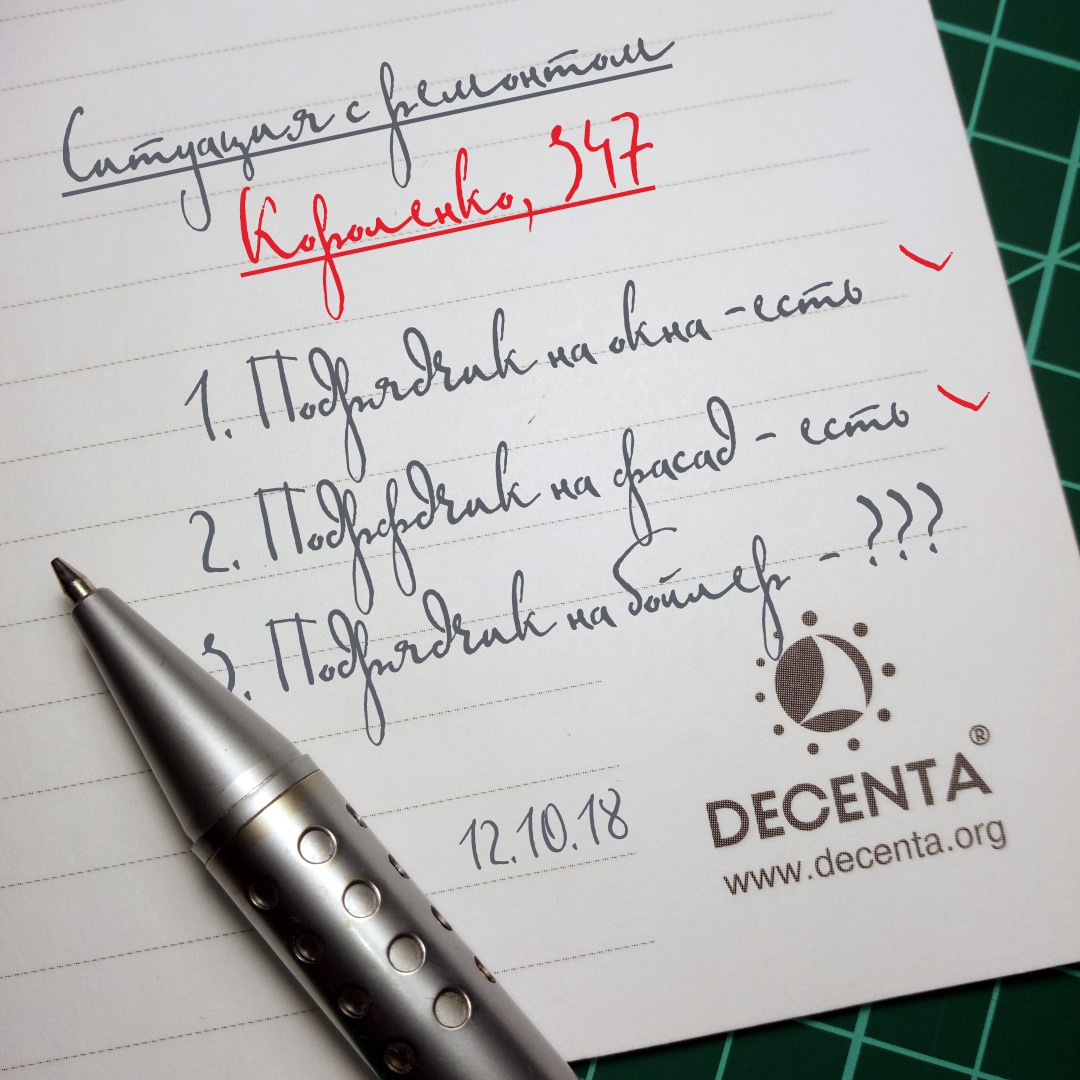 Ситуация с ремонтом
Короленко, 347
1. Подрядчик на окна - есть
2. Подрфдчик на фасад - есть
3. Подрядчик на бойлер - ???
12.10.18
DECENTA®
www.decenta.org